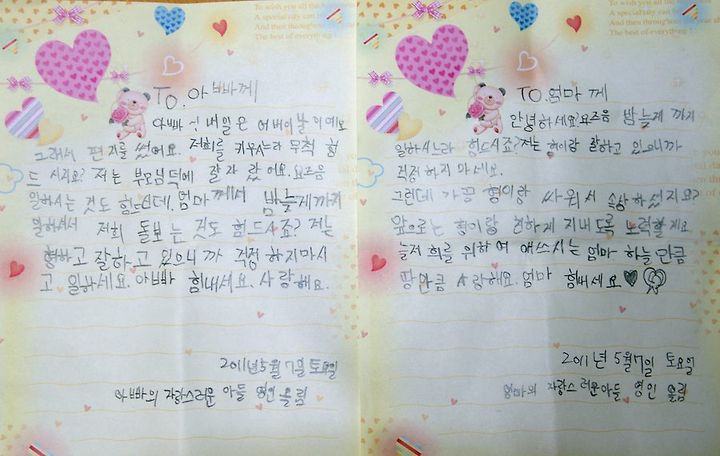 To wish you all the
A special city can
And then throughout
The best of everything
TO. 아빠께
아빠 ~! 내일은 어버이날이예요
그래서 편지를 썼어요. 저희를 키우시느라 무척 힘
드시지요? 저는 부모님덕에 잘 자랐어요. 요즈음
일하시는 것도 힘드신데, 엄마께서 밤늦게까지
일하셔서 저희 돌보는 것도 힘드시죠? 저는
형하고 잘하고 있으니까 걱정하지마시
고 일하세요. 아빠 힘내세요. 사랑해요.
2011년 5월 7일 토요일
아빠의 자랑스러운 아들 영인 올림
To wish you all the
A special city can see your
And then throughout
The best of everything !
TO. 엄마께
안녕하세요? 요즈음 밤늦게 까지
일하시느라 힘드시죠? 저는 형이랑 잘하고 있으니까
걱정하지 마세요.
그런데 가끔 형이랑 싸워서 속상하셨지요?
앞으로는 형이랑 친하게 지내도록 노력할게요
늘 저희를 위하여 애쓰시는 엄마 하늘만큼
땅만큼 사랑해요. 엄마 힘내세요♥
2011년 5월 7일 토요일
엄마의 자랑스러운아들 영인 올림